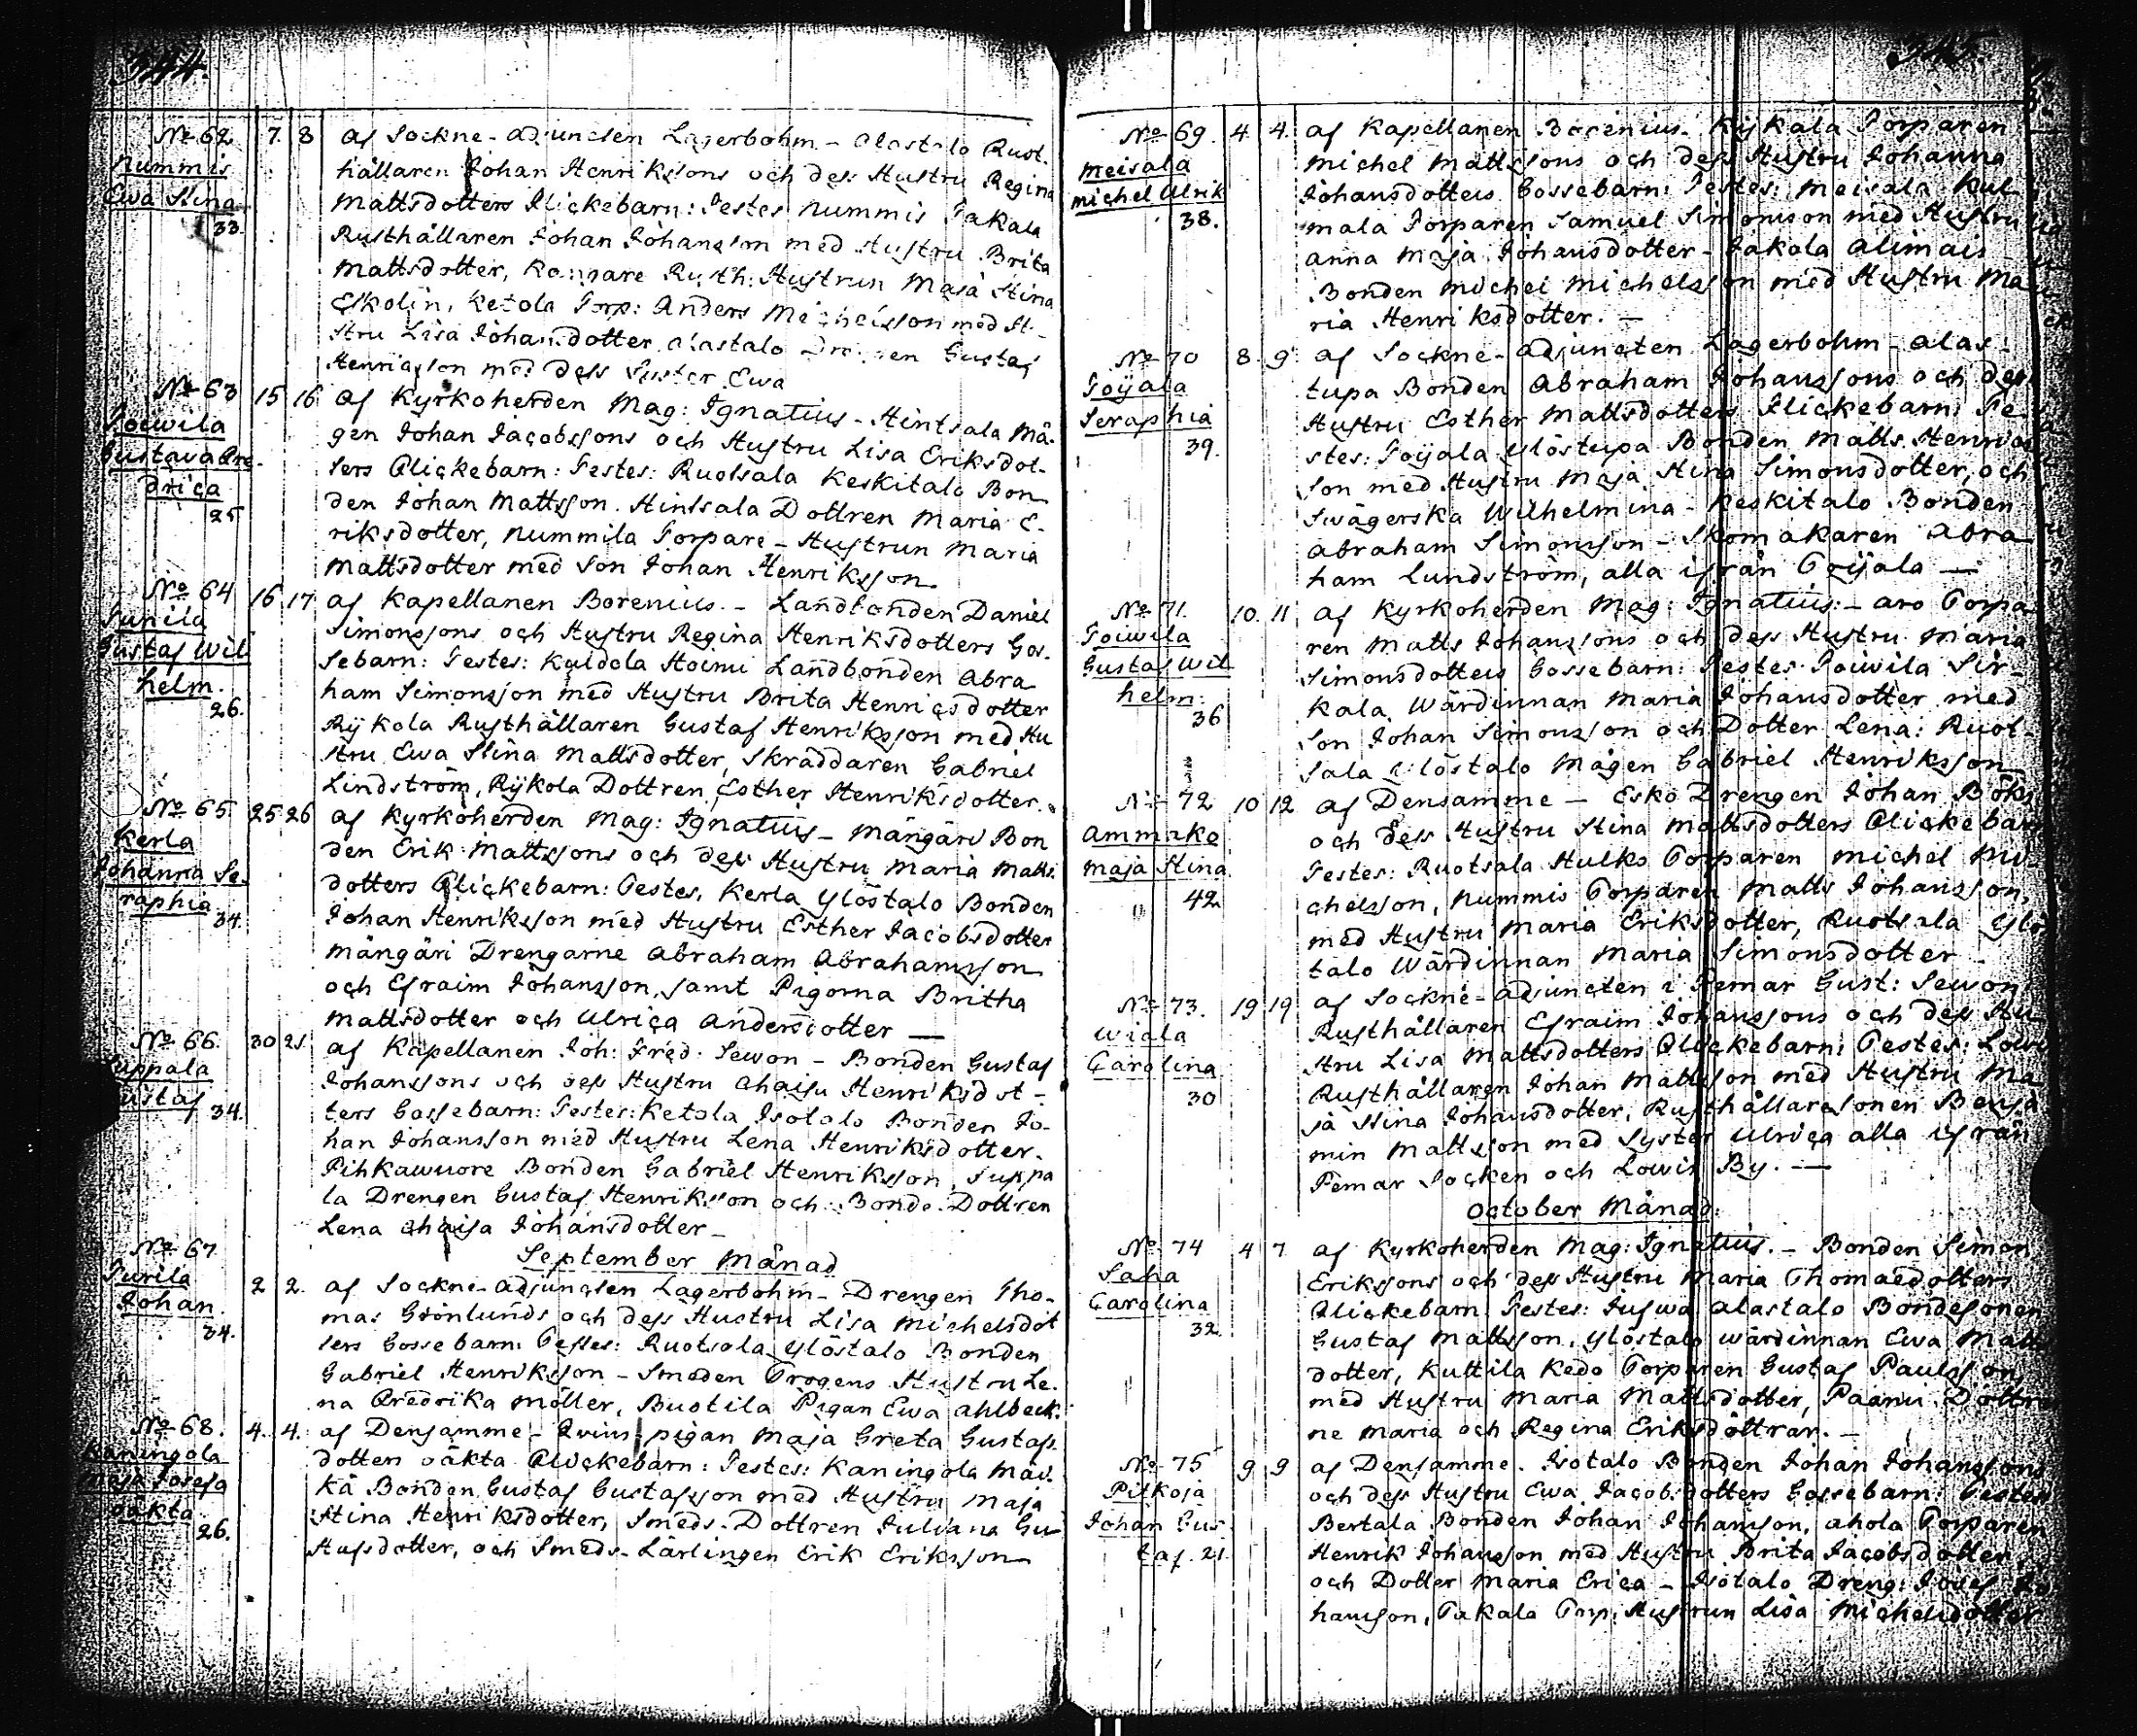 344.
No 62 7. 8 af Sockne-adjuncten Lagerbohm - Alastalo Rust-
Nummis hållaren Johan Henrikssons och dess Hustru Regina
Ewa Stina Mattsdotters Flickebarn: Testes Nummis Takala
33. Rusthållaren Johan Johansson med Hustru Brita
Mattsdotter, Rusth: Hustrun Maja Stina
Eskolin, Ketola Torp: Anders Michelsson med Hu-
stru Lisa Johansdotter, Alastalo Drengen Gustaf
Henricsson med dess Syster Ewa
No 63 15 16 af Kyrkoherden Mag: Ignatius - Hintsala Må-
Toiwila gen Johan Jacobssons och Hustru Lisa Eriksdot-
Gustava Fre- ters Flickebarn: Testes: Ruotsala Keskitalo Bon-
drica den Johan Mattsson. Hintsala Dottren Maria E-
25 riksdotter, Nummila Torpare-Hustrun Maria
Mattsdotter med Son Johan Henriksson
No 64 16 17 af Kapellanen Borenius. - Landbonden Daniel
Junila Simonssons och Hustru Regina Henriksdotters Gos-
Gustaf Wil- sebarn: Testes: Kuldola Hoimi Landbonden Abra-
helm. ham Simonsson med Hustru Brita Henricsdotter
26. Rykola Rusthållaren Gustaf Henriksson med Hu
stru Ewa Stina Mattsdotter, Skräddaren Gabriel
Lindström, Rykola Dottren Esther Henriksdotter.
No 65. 25 26 af Kyrkoherden Mag: Ignatius - Mängäri Bon
Kerla den Erik Mattssons och dess Hustru Maria Matts-
Johanna Se- dotters Flickebarn: Testes, Kerla Ylöstalo Bonden
raphia Johan Henriksson med Hustru Esther Jacobsdotter
34. Mängäri Drengarne Abraham Abrahamsson
och Efraim Johansson, samt Pigorna Britha
Mattsdotter och Ulrica Andersdotter —
No 66. 30 31 af Kapellanen Joh: Fred: Sewon - Bonden Gustaf
Suppala Johanssons och dess Hustru Chaisa Henriksdot-
Gustaf ters Gossebarn: Testes: Ketola Isotalo Bonden Jo-
34. han Johansson med Hustru Lena Henriksdotter.
Pihkawuore Bonden Gabriel Henriksson, Suppa
la Drengen Gustaf Henriksson och Bonde-Dottren
Lena Chaisa Johansdotter -
September Månad
No 67 2 2. af Sockne-adjuncten Lagerbohm - Drengen Tho-
Purila mas Grönlunds och dess Hustru Lisa Michelsdot
Johan. ters Gossebarn: Testes: Ruotsala Ylöstalo Bonden
34. Gabriel Henriksson - Smeden Trogens Hustru Le-
na Fredrika Möller, Bustila Pigan Ewa Ahlbeck.
No 68. 4. 4. af Densamme - pigan Maja Greta Gustafs
Kaningola dotters oäkta Flickebarn: Testes: Kaningola Mäc-
Maja Josefa kä Bonden Gustaf Gustafsson med Hustru Maja
oäkta Stina Henriksdotter, Smeds-Dottren Juliana Gu
26. stafsdotter, och Smeds-Lärlingen Erik Eriksson
345.
No 69. 4 4. af Kapellanen Borenius. Kykala Torparen
Meisala Michel Mattssons och dess Hustru Johanna
Michel Ulrik Johansdotters Gossebarn: Testes: Meisala Kul-
38. mala Torparen Samuel Simonsson med Hustru
Anna Maja Johansdotter - Jakola Alimais
Bonden Michel Michelsson med Hustru Ma
ria Henriksdotter. —
No 70 8. 9 af Sockne-adjuncten Lagerbohm - Alas-
Toijala tupa Bonden Abraham Johanssons och dess
Seraphia Hustru Esther Mattsdotters Flickebarn: Te-
39. stes: Toijala Ylöstupa Bonden Matts Henrics
son med Hustru Maja Stina Simonsdotter, och
Swägerska Wilhelmina - Keskitalo Bonden
Abraham Simonsson - Skomakaren Abra-
ham Lundström, alla ifrån Toijala —
No 71. 10. 11 af Kyrkoherden Mag: Ignatius: - Aro Torpa-
Toiwila ren Matts Johanssons och dess Hustru Maria
Gustaf Wil- Simonsdotters Gossebarn: Testes: Toiwila Sir-
helm. kala Wärdinnan Maria Johansdotter med
36 Son Johan Simonsson och Dotter Lena: Ruot-
sala Ylöstalo Mågen Gabriel Henriksson
No 72 10 12 af Densamme - Esko Drengen Johan Böks
Ammako och dess Hustru Stina Mattsdotters Flickebarn
Maja Stina. Testes: Ruotsala Hulko Torparen Michel Mi-
42 chelsson, Nummis Torparen Matts Johansson,
med Hustru Maria Eriksdotter, Ruotsala Ylö
talo Wärdinnan Maria Simonsdotter -
No 73. 19 19 af Sockne-adjuncten i Pemar Gust: Sewon
Wiala Rusthållaren Efraim Johanssons och dess Hu-
Carolina stru Lisa Mattsdotters Flickebarn: Testes: Lowi
30 Rusthållaren Johan Mattsson med Hustru Ma
ja Stina Johansdotter, Rusthållaresonen Benja
min Mattsson med Syster Ulrica alla ifrån
Pemar Socken och Lowis By. —
October Månad.
No 74 4 7 af Kyrkoherden Mag: Ignatius. - Bonden Simon
Saha Erikssons och dess Hustru Maria Thomaedotters
Carolina Flickebarn Testes: Juswa Alastalo Bondesonen
32. Gustaf Mattsson, Ylöstalo Wärdinnan Ewa Matts
dotter, Kuttila Kedo Torparen Gustaf Paulsson,
med Hustru Maria Mattsdotter, Paanu Dottrar
ne Maria och Regina Eriksdöttrar. —
No 75 9 9 af Densamme. Isotalo Bonden Johan Johanssons
Pitkoja och dess Hustru Ewa Jacobsdotters Gossebarn: Testes
Johan Gus- Bertala Bonden Johan Johansson, Ahola Torparen
taf. 21. Henrik Johansson med Hustru Brita Jacobsdotter,
och Dotter Maria Erica - Isotalo Dreng: Josef Jo
hansson, Takala Torp: Hustrun Lisa Michelsdotter